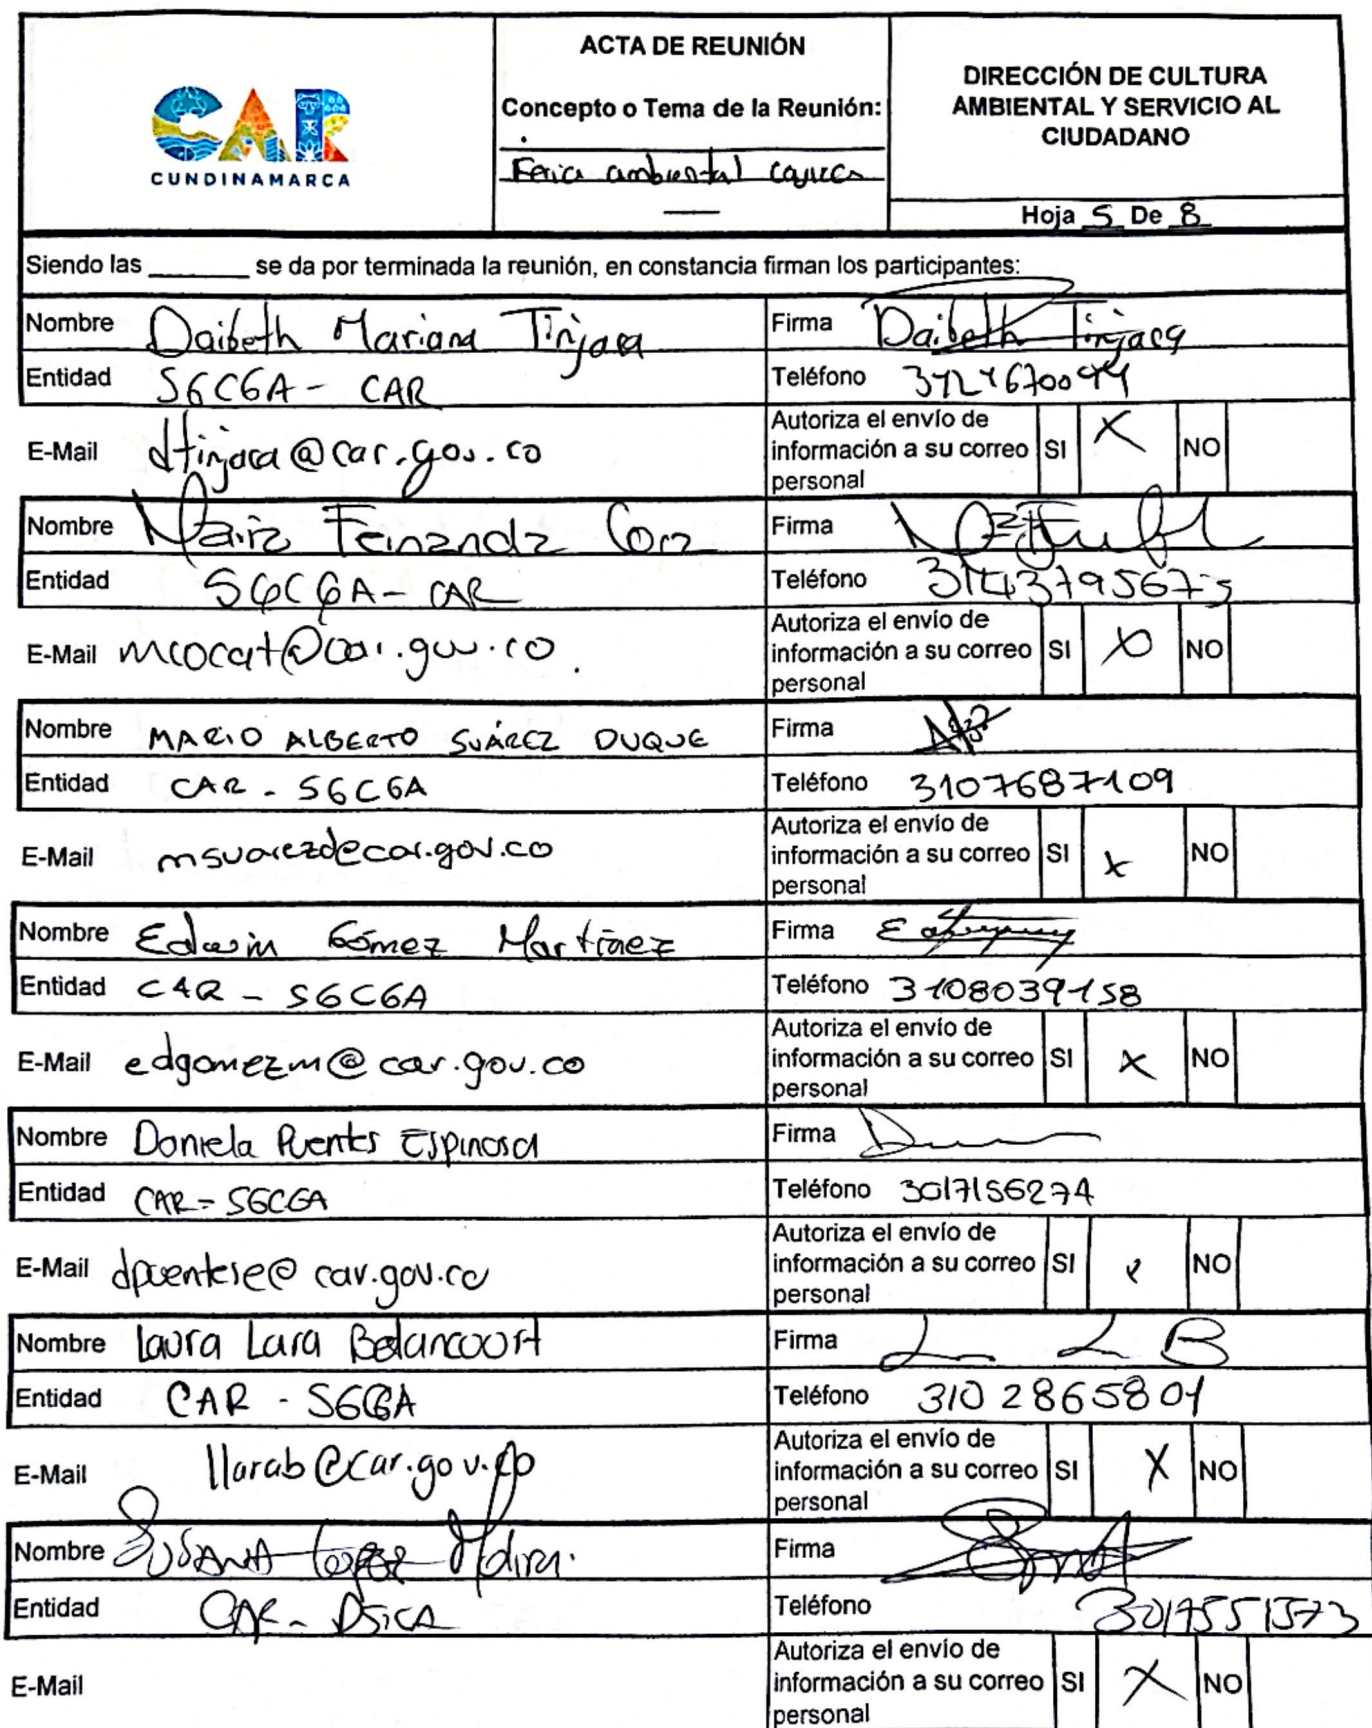 CAR
CUNDINAMARCA
ACTA DE REUNIÓN
Concepto o Tema de la Reunión:
Feria ambiental cajica
DIRECCIÓN DE CULTURA
AMBIENTAL Y SERVICIO AL
CIUDADANO
Hoja 5 De 8
Siendo las ______ se da por terminada la reunión, en constancia firman los participantes:
Nombre Daibeth Mariana Tinjaca Firma Daibeth Tinjaca
Entidad SGCGA - CAR Teléfono
E-Mail dtinjaca@car.gov.co
Autoriza el envío de
información a su correo SI X NO
personal
Nombre Maria Fernanda Firma
Entidad SGCGA - CAR Teléfono
E-Mail
Autoriza el envío de
información a su correo SI X NO
personal
Nombre MARIO ALBERTO SUÁREZ DUQUE Firma
Entidad CAR - SGCGA Teléfono 3107687109
E-Mail msuarezd@car.gov.co
Autoriza el envío de
información a su correo SI x NO
personal
Nombre Edwin Gómez Martínez Firma
Entidad CAR - SGCGA Teléfono 3108039158
E-Mail edgomezm@car.gov.co
Autoriza el envío de
información a su correo SI x NO
personal
Nombre Daniela Puentes Espinosa Firma
Entidad CAR - SGCGA Teléfono 3017156274
E-Mail dpuentese@car.gov.co
Autoriza el envío de
información a su correo SI x NO
personal
Nombre Laura Lara Betancourt Firma L L B
Entidad CAR - SGCGA Teléfono 310 2865801
E-Mail llarab@car.gov.co
Autoriza el envío de
información a su correo SI X NO
personal
Nombre Susana Lopez Firma
Entidad CAR - Teléfono 3017551573
E-Mail
Autoriza el envío de
información a su correo SI X NO
personal